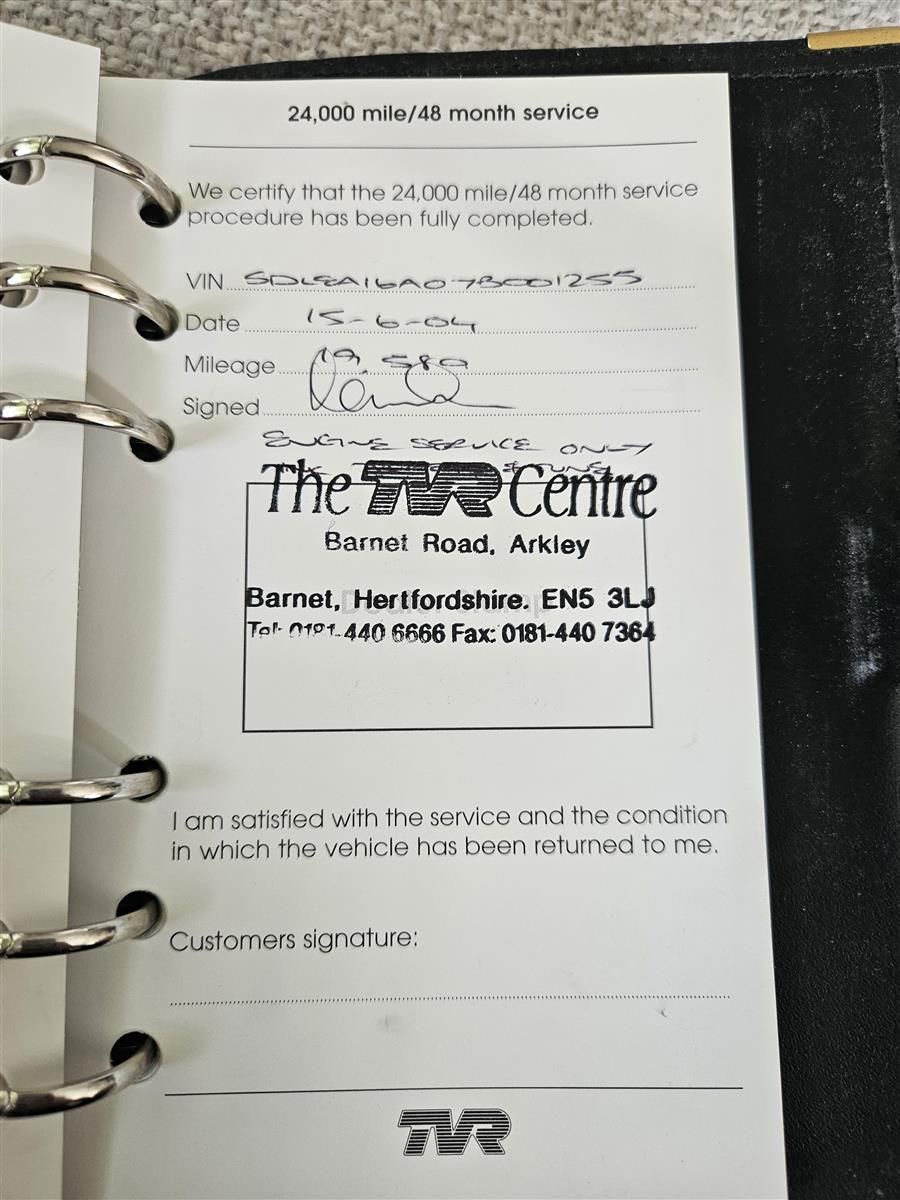 24,000 mile/48 month service
We certify that the 24,000 mile/48 month service
procedure has been fully completed.
VIN SDLEA16A07B001255
Date 15-6-04
Mileage 19,589
Signed
ENGINE SERVICE ONLY
& TUNE
The TVR Centre
Barnet Road, Arkley
Barnet, Hertfordshire. EN5 3LJ
Tel: 0181-440 6666 Fax: 0181-440 7364
I am satisfied with the service and the condition
in which the vehicle has been returned to me.
Customers signature:
TVR